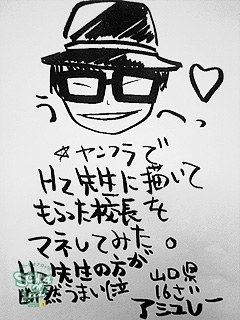 う へっ
☆ヤンフラで
Hz先生に描いて
もらった校長を
マネしてみた。
Hz先生の方が
断然うまい(泣
山口県
16さい
アシュレー